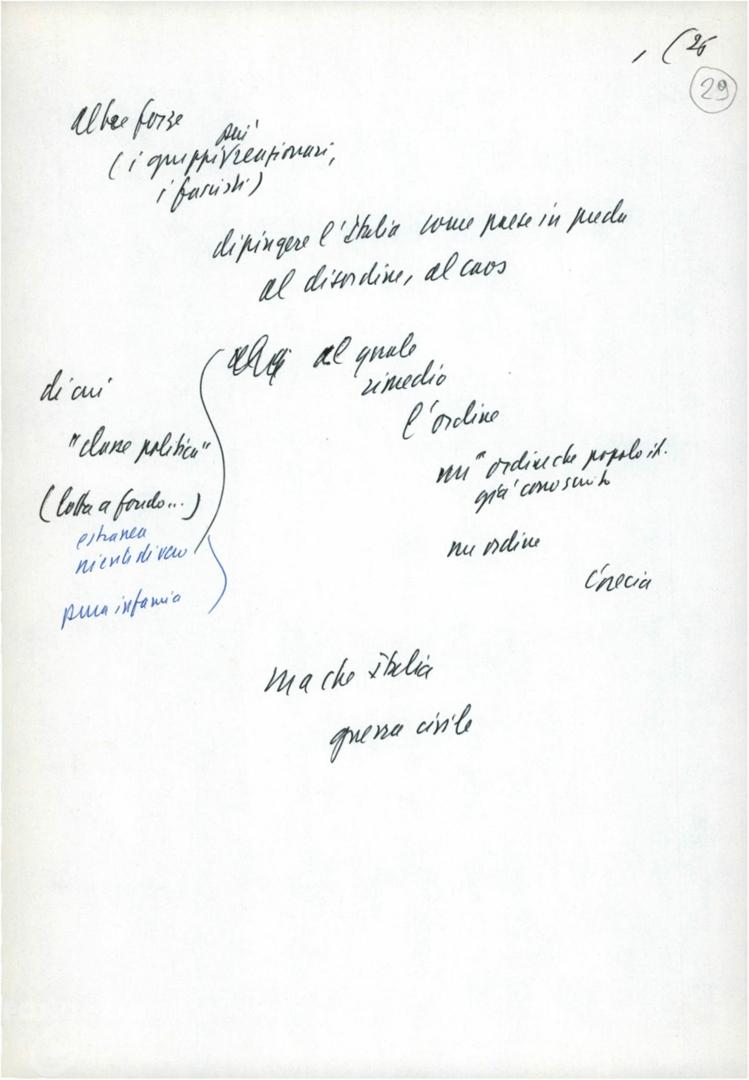 , (26
29
altre forze
più
(i gruppi reazionari,
i fascisti)
dipingere l'Italia come paese in preda
al disordine, al caos
al quale
rimedio
l'ordine
un "ordine che popolo it.
già conosciuto
un ordine
Grecia
di cui
"classe politica"
(lotta a fondo...)
estranea
niente di vero
pura infamia
ma che Italia
guerra civile